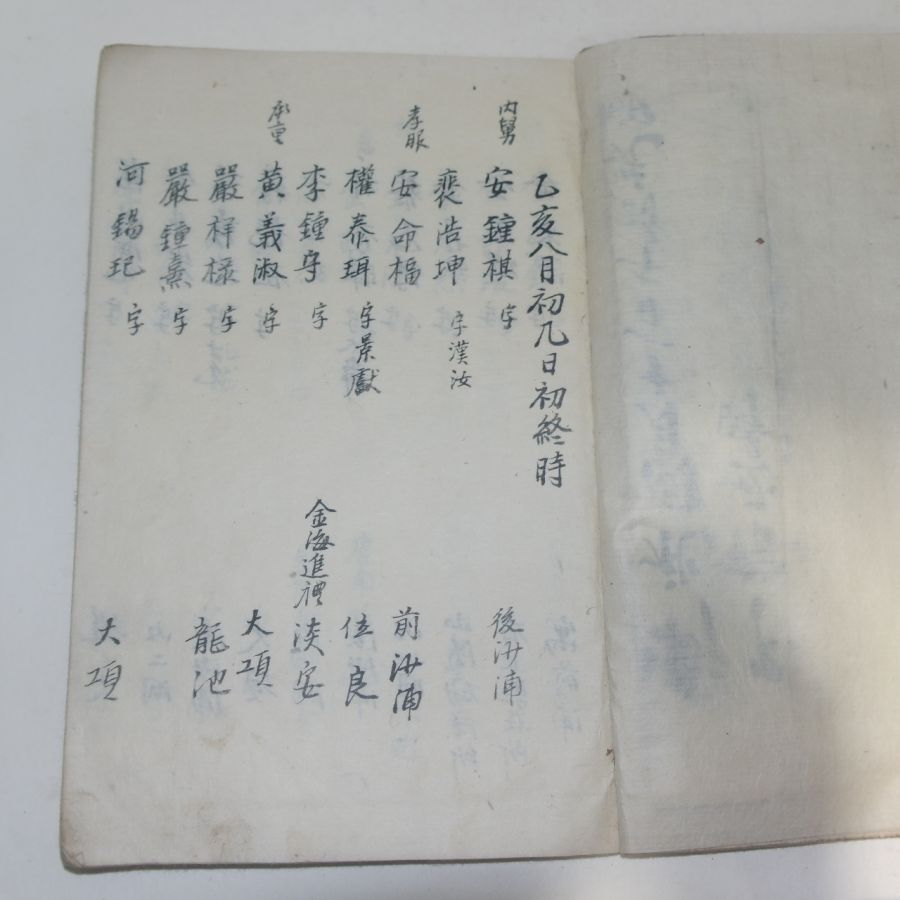 乙亥八月初九日初終時
內舅 安鍾祺 字 後汌浦
裵浩坤 字漢汝
孝服 安命福 前汌浦
權泰珥 字景獻 位良
李鍾守 字 金海進禮淡安
承重 黃義淑 字 大項
嚴柈椂 字 龍池
嚴鍾熹 字
河錫玘 字 大項